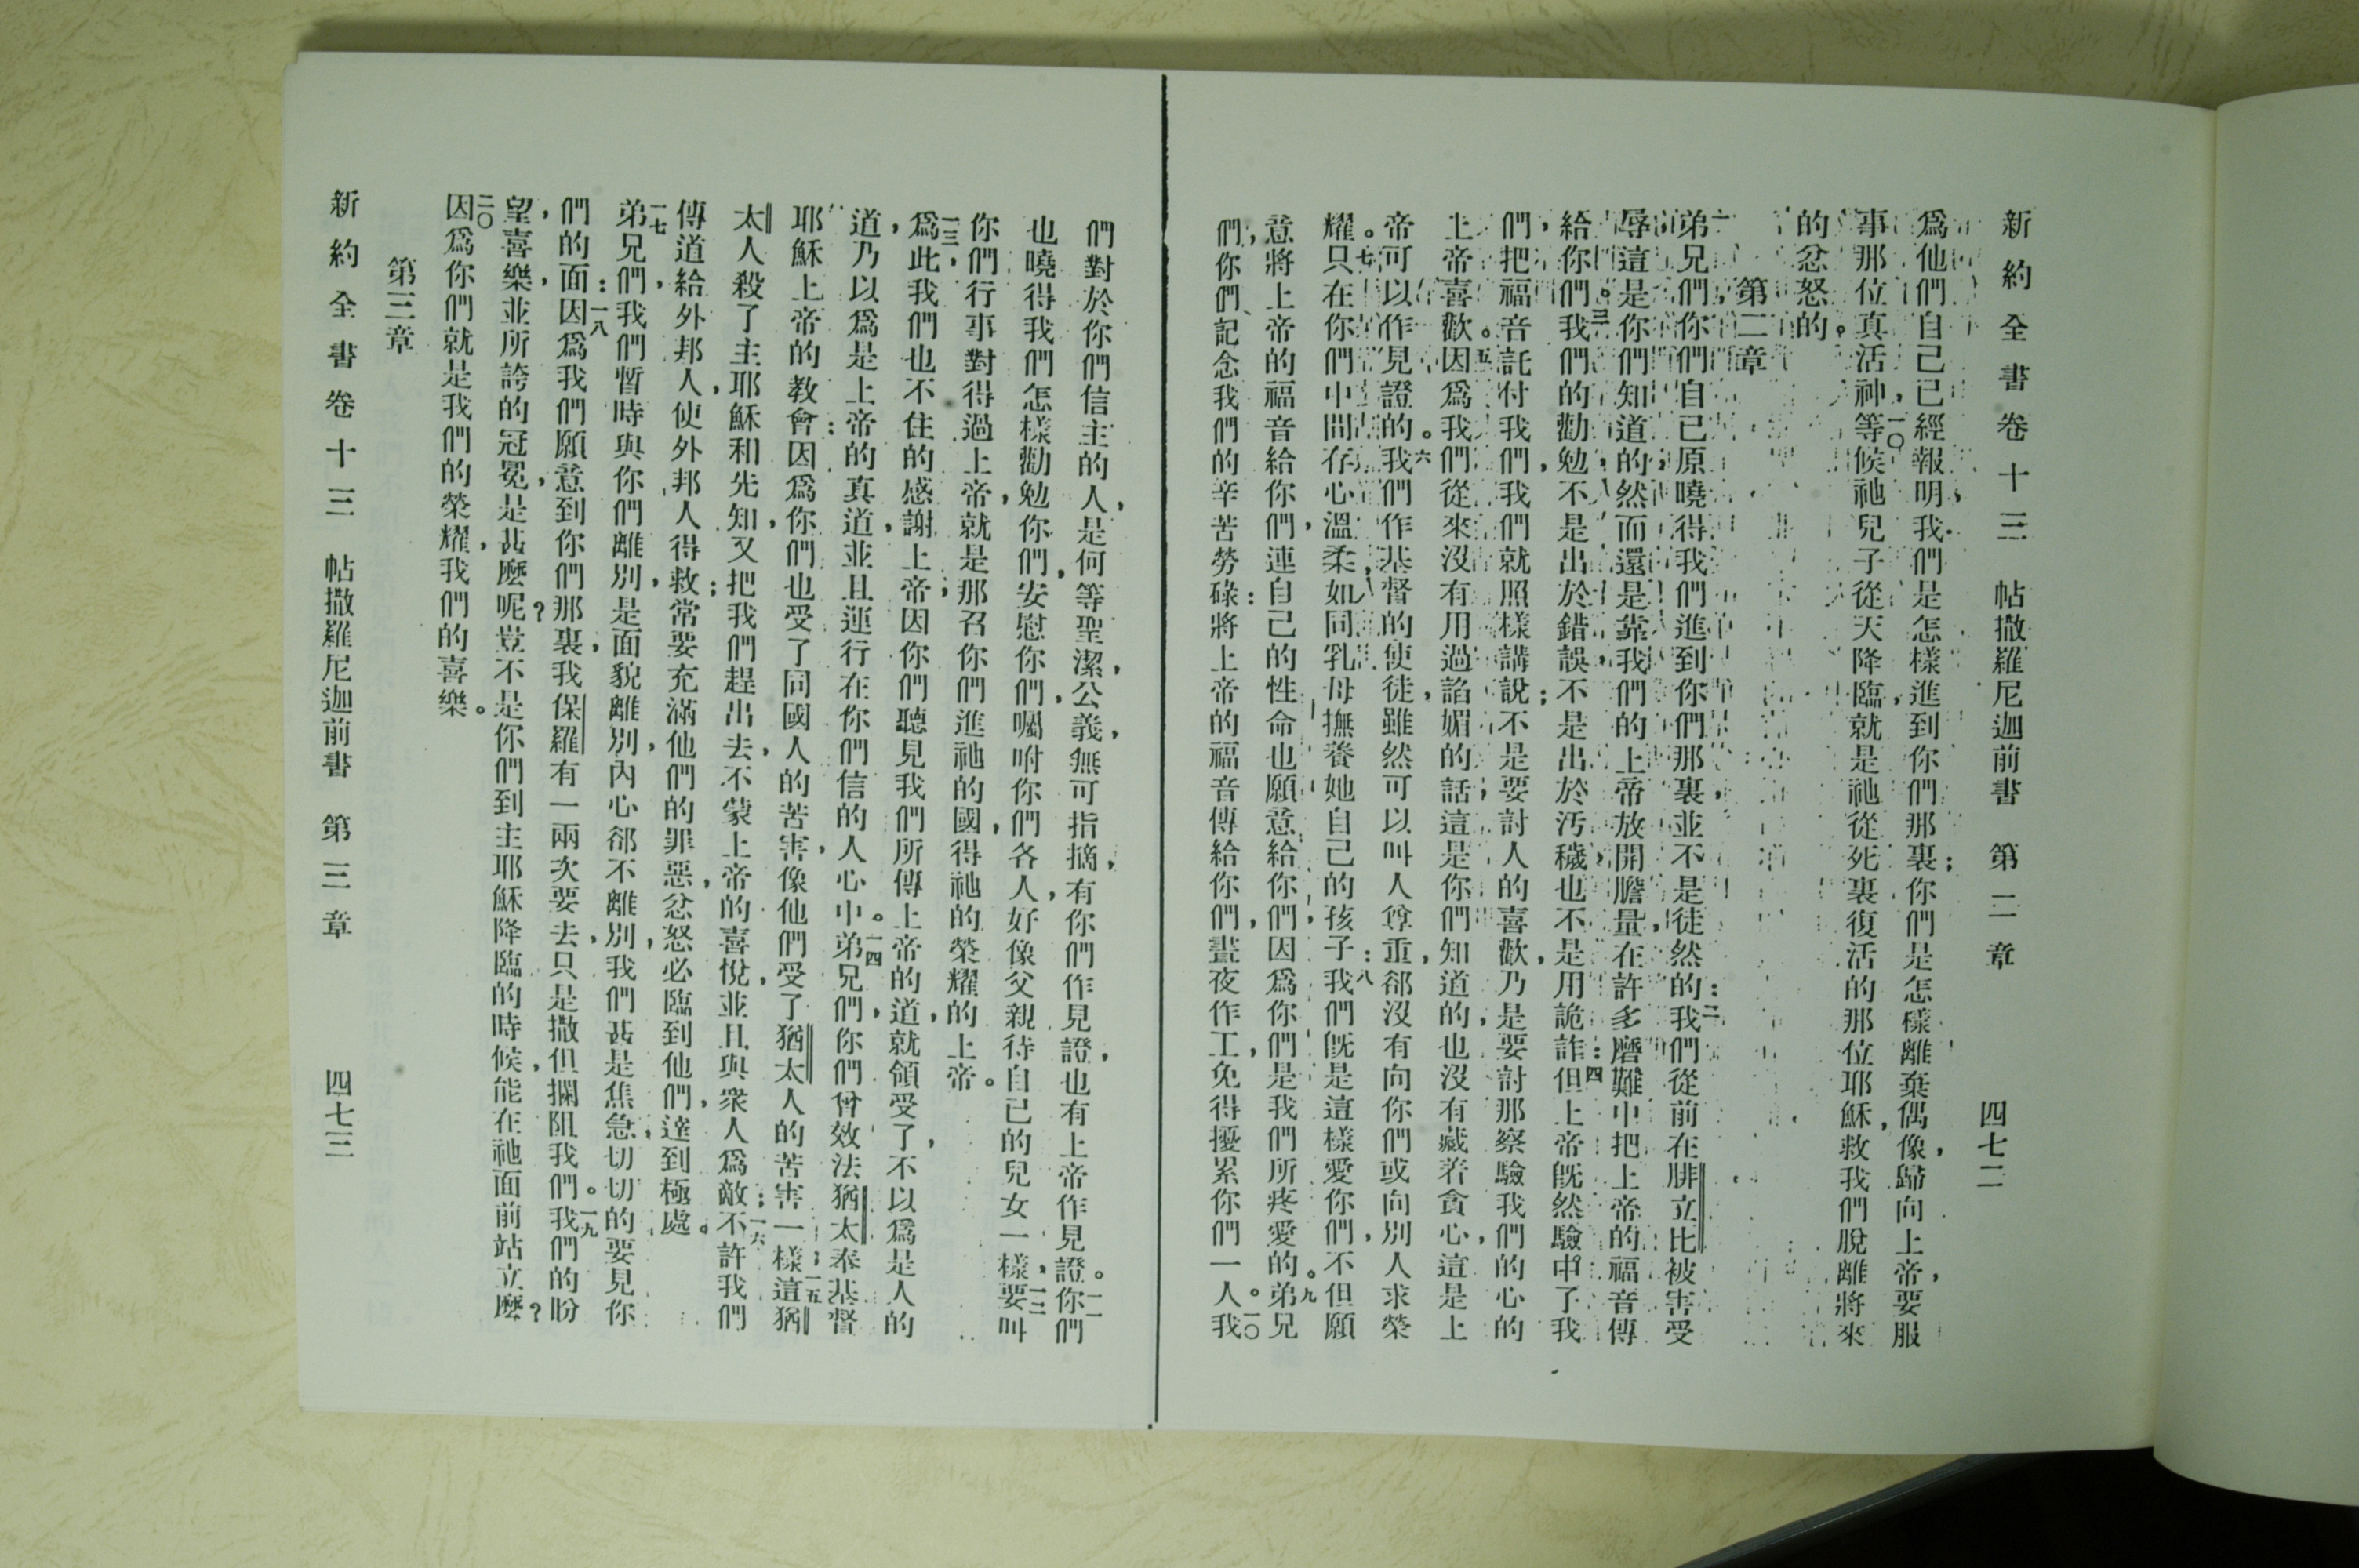 新約全書卷十三 帖撒羅尼迦前書 第二章 四七二
爲他們自己已經報明我們是怎樣進到你們那裏；你們是怎樣離棄偶像，歸向上帝，要服
事那位真活神，一〇等候祂兒子從天降臨，就是祂從死裏復活的那位耶穌，救我們脫離將來
的忿怒的。
第二章
一弟兄們，你們自己原曉得我們進到你們那裏，並不是徒然的：二我們從前在腓立比被害受
辱，這是你們知道的；然而還是靠我們的上帝放開膽量，在許多磨難中把上帝的福音傳
給你們。三我們的勸勉，不是出於錯誤，不是出於污穢，也不是用詭詐：四但上帝旣然驗中了我
們，把福音託付我們，我們就照樣講說；不是要討人的喜歡，乃是要討那察驗我們的心的
上帝喜歡。五因爲我們從來沒有用過諂媚的話，這是你們知道的，也沒有藏着貪心，這是上
帝可以作見證的。六我們作基督的使徒，雖然可以叫人尊重，郤沒有向你們或向別人求榮
耀。七只在你們中間存心溫柔，如同乳母撫養她自己的孩子：八我們旣是這樣愛你們，不但願
意將上帝的福音給你們，連自己的性命也願意給你們，因爲你們是我們所疼愛的。九弟兄
們，你們記念我們的辛苦勞碌：將上帝的福音傳給你們，晝夜作工，免得擾累你們一人。一〇我
們對於你們信主的人，是何等聖潔，公義，無可指摘，有你們作見證，也有上帝作見證。一一你們
也曉得我們怎樣勸勉你們，安慰你們，囑咐你們各人，好像父親待自己的兒女一樣，一二要叫
你們行事對得過上帝，就是那召你們進祂的國，得祂的榮耀的上帝。
一三爲此，我們也不住的感謝上帝；因你們聽見我們所傳上帝的道，就領受了，不以爲是人的
道，乃以爲是上帝的真道，並且運行在你們信的人心中。一四弟兄們，你們曾效法猶太奉基督
耶穌上帝的教會：因爲你們也受了同國人的苦害，像他們受了猶太人的苦害一樣；一五這猶
太人殺了主耶穌和先知，又把我們趕出去，不蒙上帝的喜悅，並且與衆人爲敵：一六不許我們
傳道給外邦人，使外邦人得救；常要充滿他們的罪惡，忿怒必臨到他們，達到極處。
一七弟兄們，我們暫時與你們離別，是面貌離別，內心郤不離別，我們甚是焦急，切切的要見你
們的面：一八因爲我們願意到你們那裏，我保羅有一兩次要去，只是撒但攔阻我們。一九我們的盼
望，喜樂，並所誇的冠冕，是甚麽呢？豈不是你們到主耶穌降臨的時候，能在祂面前站立麽？
二〇因爲你們就是我們的榮耀，我們的喜樂。
第三章
新約全書卷十三 帖撒羅尼迦前書 第三章 四七三